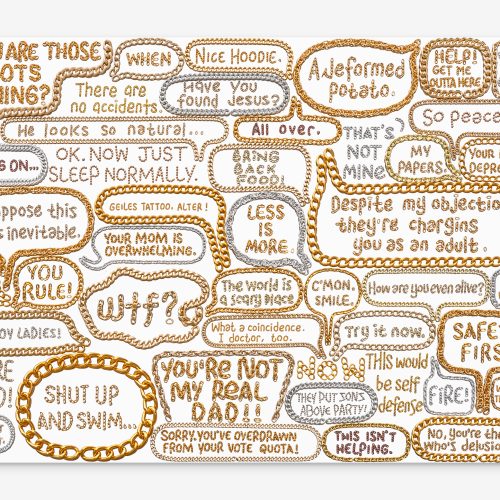 ARE THOSE
WHEN
NICE HOODIE.
A deformed
potato.
HELP!
GET ME
OUTTA HERE
There are
no accidents
Have you
found Jesus?
So peace
He looks so natural...
All over.
THAT'S
NOT
MINE
MY
PAPERS
YOUR
ON...
OK. NOW JUST
SLEEP NORMALLY.
BRING
BACK
FOOD!
this
is inevitable.
GEILES TATTOO, ALTER!
LESS
IS
MORE
Despite my objection
they're charging
you as an adult.
YOUR MOM IS
OVERWHELMING.
YOU
RULE!
wtf?
The world is
a scary place
C'MON.
SMILE.
How are you even alive?
LADIES!
What a coincidence.
I doctor, too.
Try it now.
SAFE
FIRS
SHUT UP
AND SWIM...
YOU'RE NOT
MY REAL
DAD!!
WOW
THEY PUT SONS
ABOVE PARTY!
THIS would
be self
defense
FIRE!
SORRY, YOU'VE OVERDRAWN
FROM YOUR VOTE QUOTA!
THIS ISN'T
HELPING.
No, you're th
who's delusio